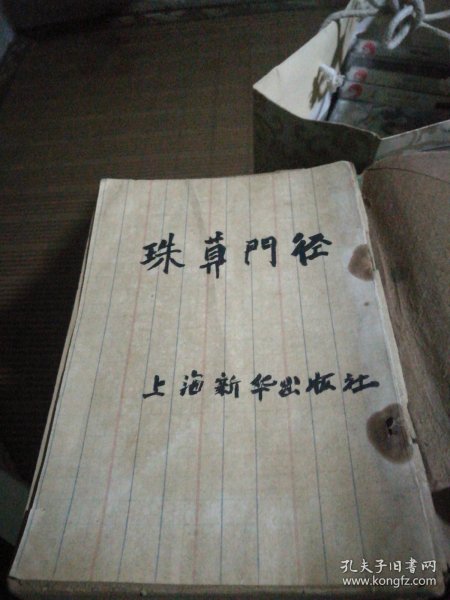 珠算門径
上海新华出版社
孔夫子旧书网
www.kongfz.com